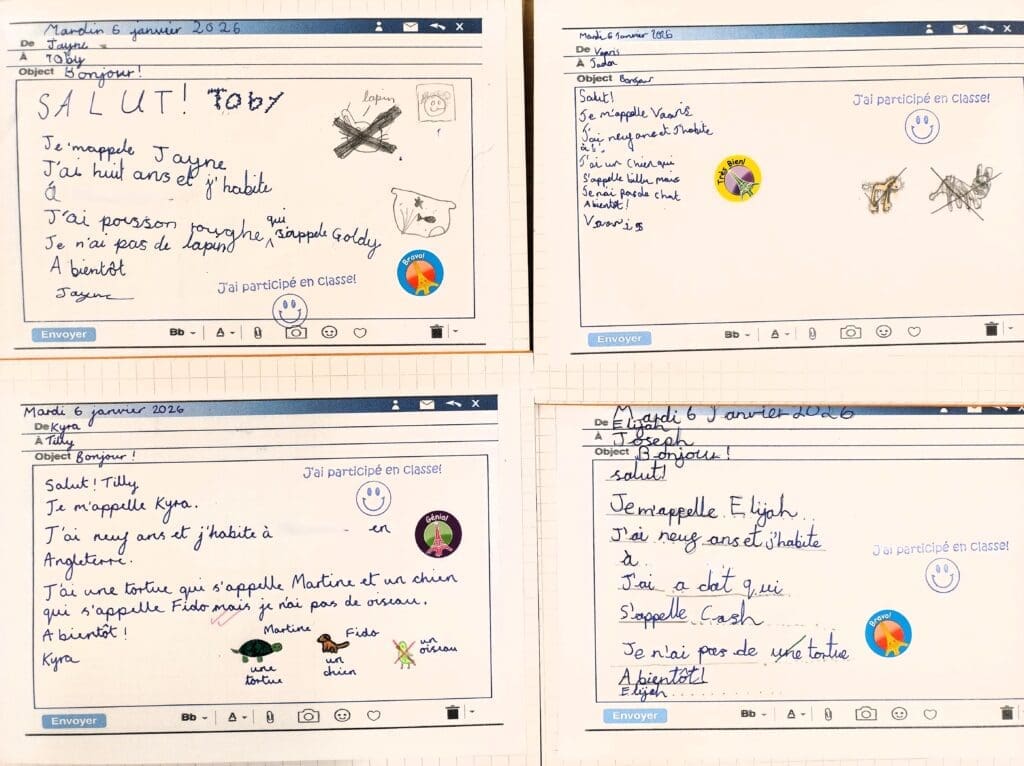 Mardin 6 janvier 2026
De Jayne
À Toby
Object Bonjour!
SALUT! Toby
lapin
Je m'appele Jayne
J'ai huit ans et j'habite
à
J'ai poisson roughe qui s'appele Goldy
Je n'ai pas de lapin
A bientôt
Jayne
Bravo!
J'ai participé en Classe!
Envoyer
Bb
A
Mardi 6 Janvier 2026
De Vaaris
À
Object Bonjour
Salut!
Je m'appelle Vaaris
J'ai neuf ans et J'habite
à
J'ai un Chien qui
S'appelle mais
Je n'ai pas de chat
A bientôt!
Vaaris
J'ai participé en Classe!
Très Bien!
Envoyer
Bb
A
Mardi 6 janvier 2026
De Kyra
À Tilly
Object Bonjour!
J'ai participé en Classe!
Salut! Tilly
Je m'appelle Kyra.
J'ai neuf ans et j'habite à en
Angleterre.
Génial
J'ai une tortue qui s'appelle Martine et un chien
qui s'appelle Fido mais je n'ai pas de oiseau.
A bientôt!
Kyra
Martine
Fido
une tortue
un chien
un oiseau
Envoyer
Bb
A
Mardi 6 Janvier 2026
De Elijah
À Joseph
Object Bonjour!
salut!
Je m'appelle Elijah
J'ai neuf ans et j'habite
à
J'ai a dat qui
S'appelle Cash
Je n'ai pas de une tortue
A bientôt!
Elijah
J'ai participé en Classe!
Bravo!
Envoyer
Bb
A